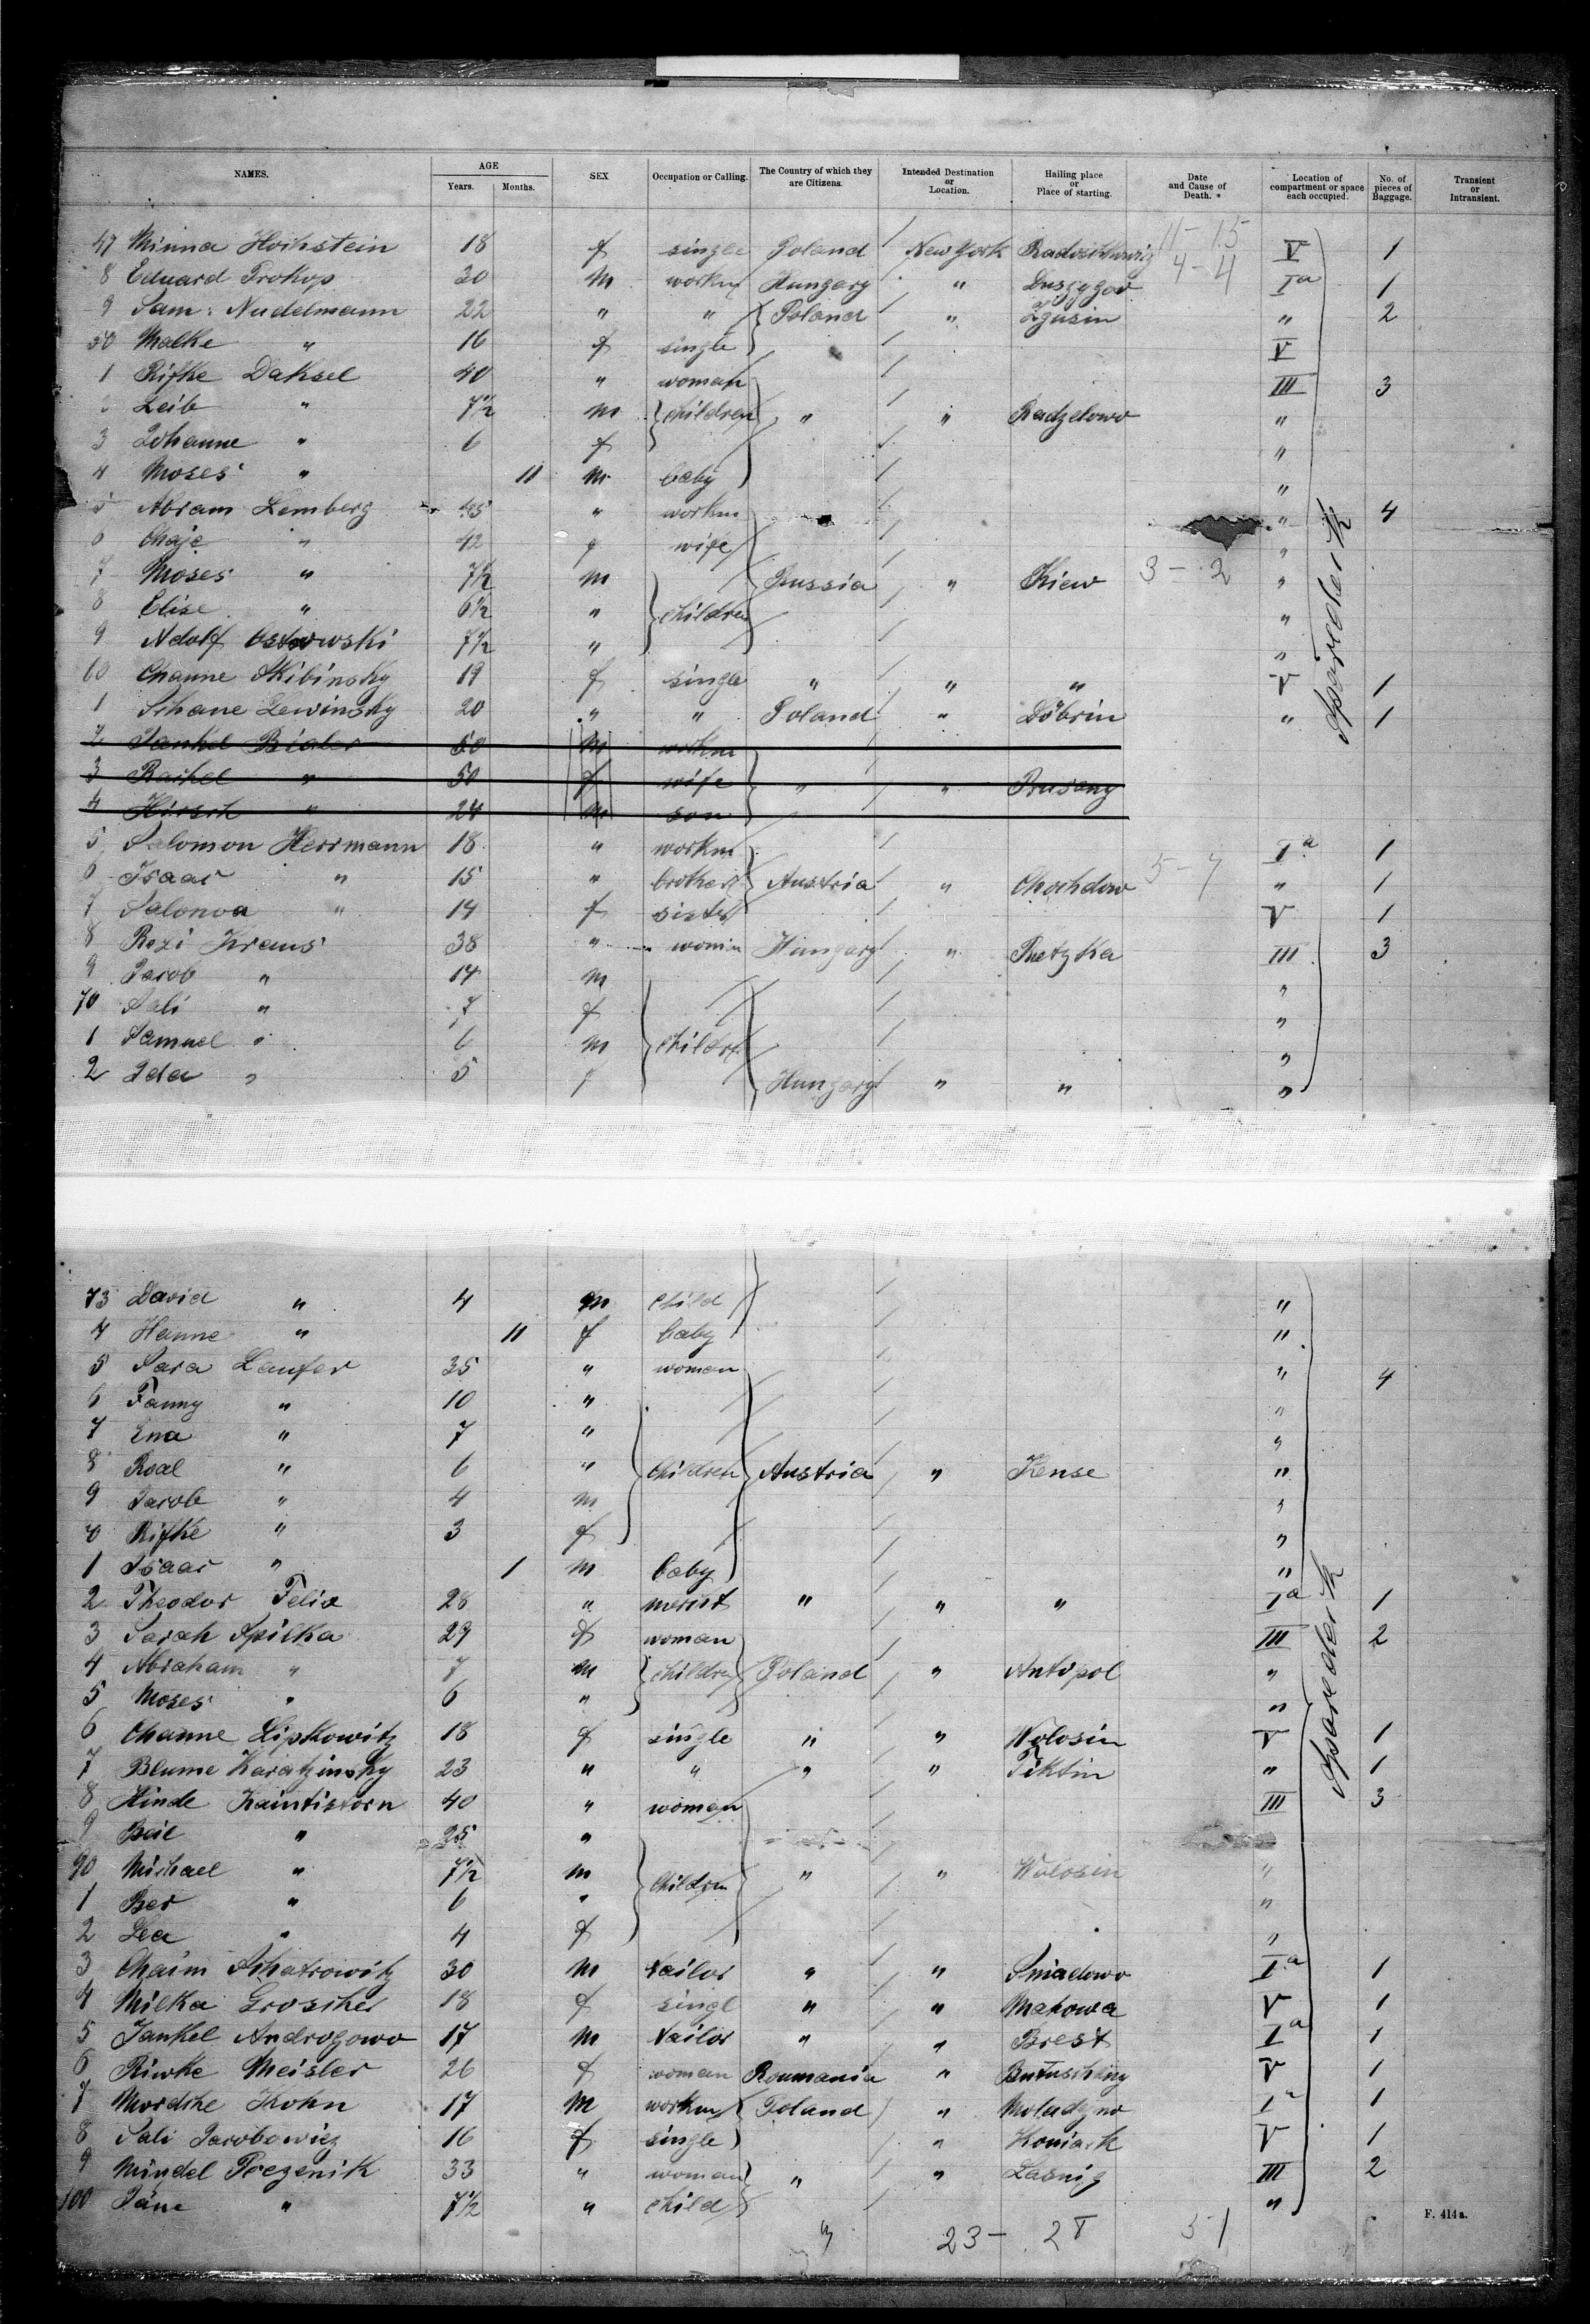 NAMES. AGE Years. Months. SEX Occupation or Calling. The Country of which they are Citizens. Intended Destination or Location. Hailing place or Place of starting. Date and Cause of Death.* Location of compartment or space each occupied. No. of pieces of Baggage. Transient or Intransient.
11-15
47 Minna Hochstein 18 f single Poland New York V 1
4-4
8 Eduard Prokop 30 m workm Hungary " Ia 1
9 Sam: Nudelmann 22 " " Poland " Zgusin " 2
50 Malke " 16 f single V
1 Rifke Daksel 40 " woman III 3
2 Leib " 7½ m children " " Radzelowo "
3 Johanne " 6 f "
4 Moses " 11 m baby "
5 Abram Lemberg 45 " workm " 4
6 Chaje " 42 f wife "
7 Moses " 7½ m Russia " Kiew 3-2 "
8 Elise " 6½ " children "
9 Adolf Ostrowski 7½ " "
60 Channe Skibinsky 19 f single " " " V 1
1 Schane Lewinsky 20 " " Poland " Döbrin " 1
2 Jankel Bialer 50 m workm
3 Rachel " 50 f wife " " Prusany
4 Hirsch " 24 m son
5 Salomon Herrmann 18 " workm Ia 1
6 Isaac " 15 " brother Austria " Chochdow 5-7 " 1
7 Salomoa " 14 f sister V 1
8 Rezi Kraus 38 " woman Hungary " Retzka III 3
9 Jacob " 14 m "
70 Sali " 7 f "
1 Samuel " 6 m childr "
2 Ida " 5 f Hungary " " "
Spardeck
73 David " 4 m child "
4 Hanne " 11 f baby "
5 Sara Laufer 35 " woman " 4
6 Fanny " 10 " "
7 Ena " 7 " "
8 Roal " 6 " children Austria " Kense "
9 Jacob " 4 m "
0 Rifke " 3 f "
1 Isaac " 1 m baby "
2 Theodor Felix 28 " mercht " " " Ia 1
3 Sarah Spilka 29 f woman III 2
4 Abraham " 7 m children Poland " Antopol "
5 Moses " 6 " "
6 Channe Lipkowitz 18 f single " " Wolosin V 1
7 Blume Karatzinsky 23 " " " " Tiktin " 1
8 Hinde Kaintistorn 40 " woman III 3
9 Beile " 25 "
90 Michael " 7½ m children " " Wolosin "
1 Ber " 6 " "
2 Lea " 4 f "
3 Chaim Schatrowitz 30 m tailor " " Sniadowo Ia 1
4 Milka Groscher 18 f singl " " Makowa V 1
5 Jankel Androgowo 17 m tailor " " Brest Ia 1
6 Riwke Meisler 26 f woman Roumania " V 1
7 Mordche Kohn 17 m workm Poland " Moladzno Ia 1
8 Sali Jacobowicz 16 f single " Koniark V 1
9 Mindel Prezenik 33 " woman " " Lasnig III 2
100 Jäne " 7½ " child "
Spardeck
F. 414a.
23- 2